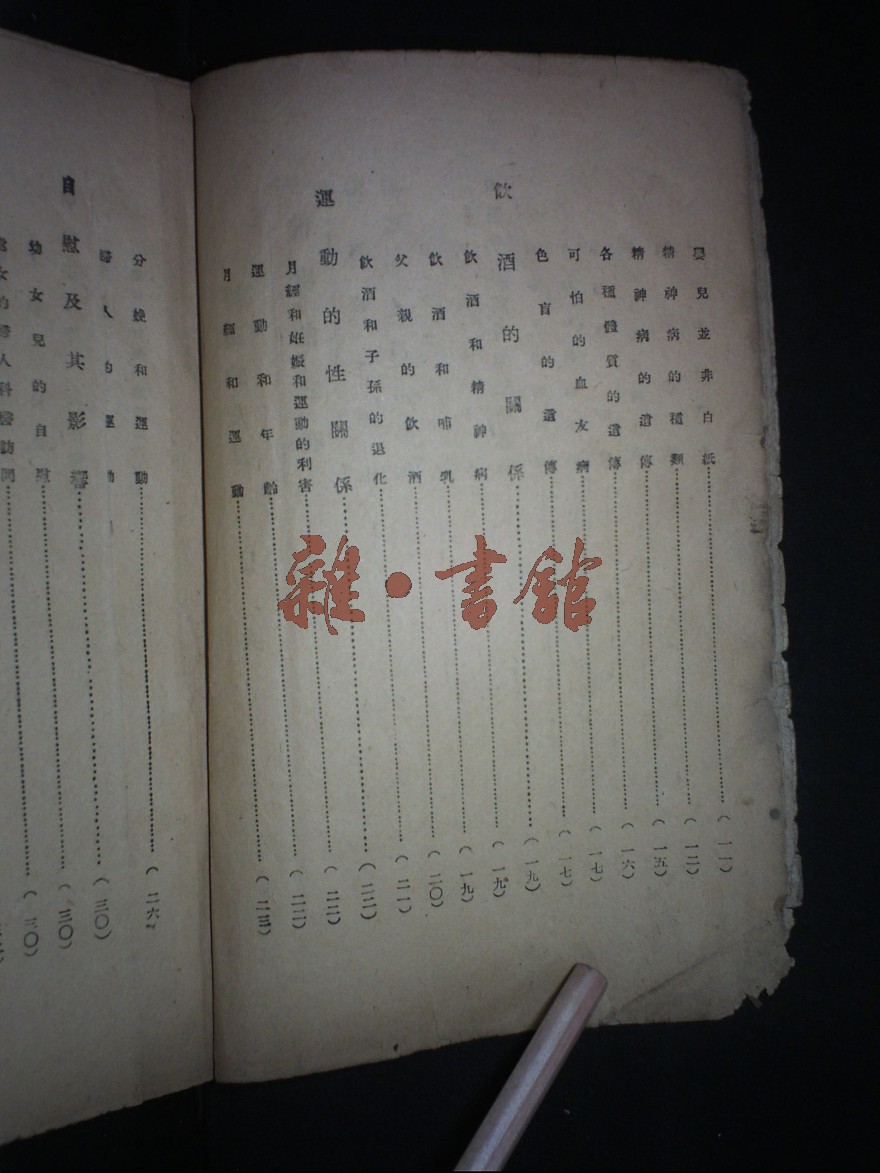 嬰兒並非白紙……(一一)
精神病的種類……(一二)
精神病的遺傳……(一五)
各種體質的遺傳……(一六)
可怕的血友病……(一七)
色盲的遺傳……(一七)
飲酒的關係……(一九)
飲酒和精神病……(一九)
飲酒和哺乳……(一九)
父親的飲酒……(二〇)
飲酒和子孫的退化……(二一)
運動的性關係……(二二)
月經和妊娠和運動的利害……(二二)
運動和年齡……(二二)
月經和運動……(二三)
分娩和運動……(二六)
婦人的運動
自慰及其影響……(三〇)
幼女兒的自慰……(三〇)
雜·書館